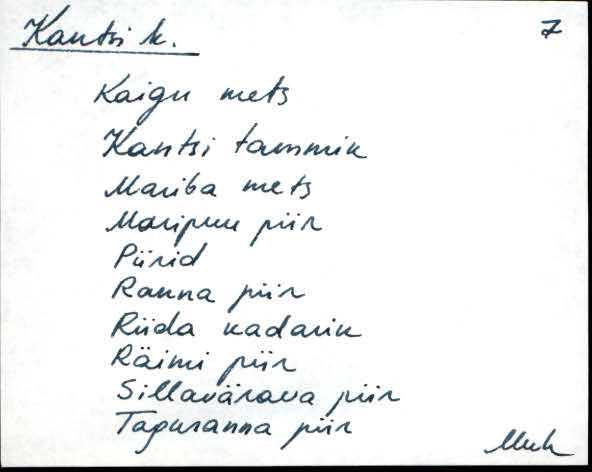 Kantsi k. 7
Kaigu mets
Kantsi tammik
Mariba mets
Maripuu piir
Piirid
Ranna piir
Riida kadarik
Räimi piir
Sillavärava piir
Taguranna piir
Muh